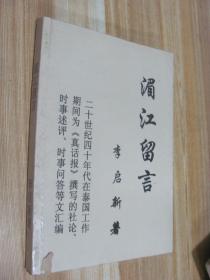 湄江留言
李启新著
二十世纪四十年代在泰国工作
期间为《真话报》撰写的社论、
时事述评、时事问答等文汇编